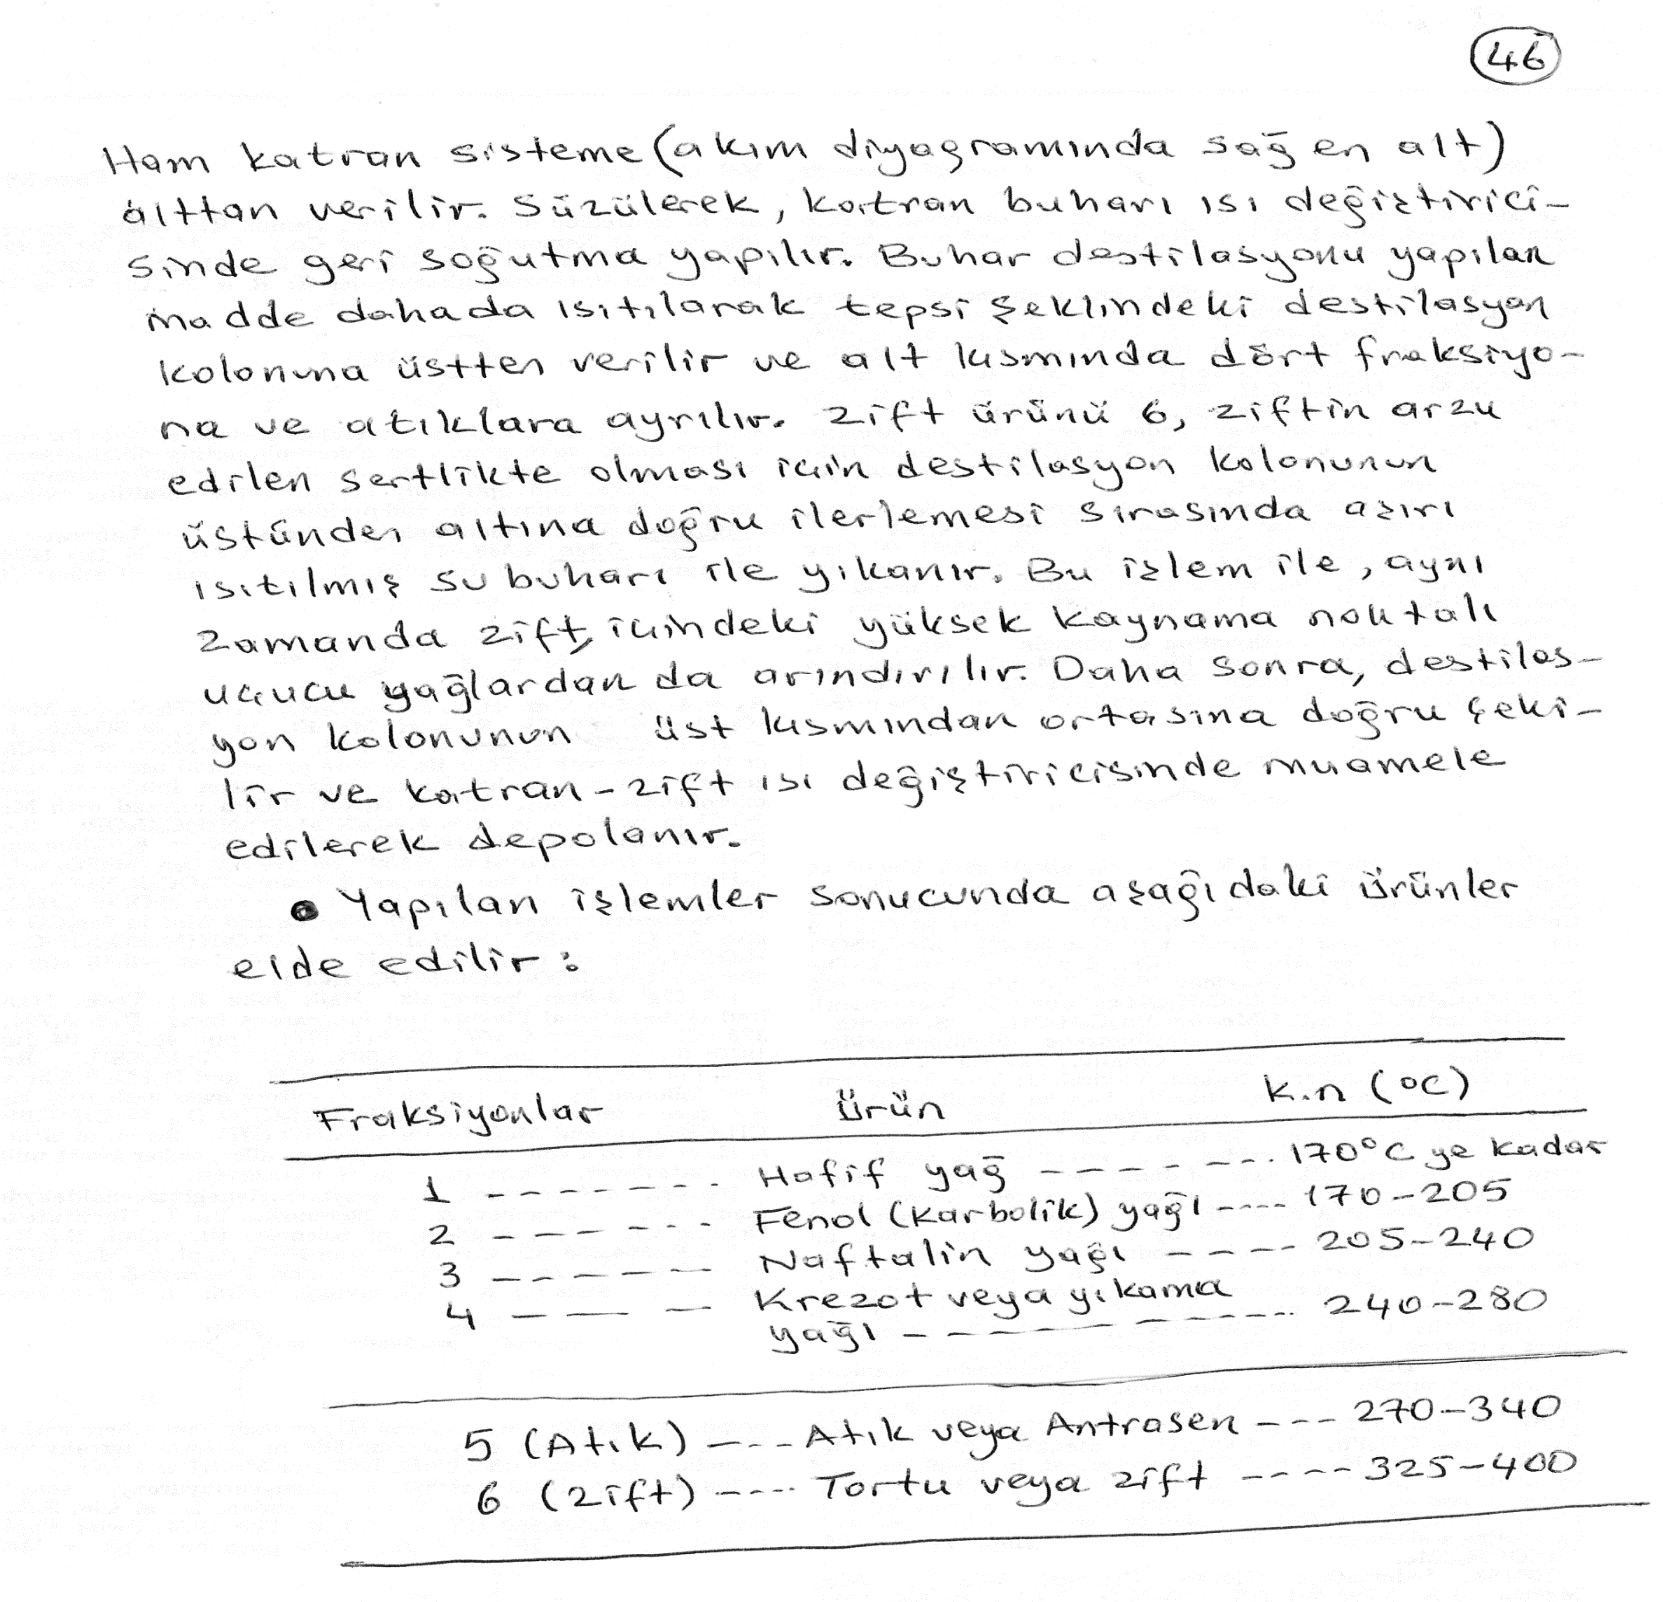 46
Ham katran sisteme (akım diyagramında sağ en alt)
alttan verilir. Süzülerek, katran buharı ısı değiştirici-
sinde geri soğutma yapılır. Buhar destilasyonu yapılan
madde dahada ısıtılarak tepsi şeklindeki destilasyon
kolonuna üstten verilir ve alt kısmında dört fraksiyo-
na ve atıklara ayrılır. Zift ürünü 6, ziftin arzu
edilen sertlikte olması için destilasyon kolonunun
üstünden altına doğru ilerlemesi sırasında aşırı
ısıtılmış su buharı ile yıkanır. Bu işlem ile, aynı
zamanda zift, içindeki yüksek kaynama noktalı
uçucu yağlardan da arındırılır. Daha sonra, destilas-
yon kolonunun üst kısmından ortasına doğru çeki-
lir ve katran-zift ısı değiştiricisinde muamele
edilerek depolanır.
• Yapılan işlemler sonucunda aşağıdaki ürünler
elde edilir:
Fraksiyonlar Ürün K.n (°C)
1 ------- Hafif yağ ------- 170°C ye kadar
2 ------ Fenol (Karbolik) yağı ---- 170-205
3 ------ Naftalin yağı ---- 205-240
4 --- Krezot veya yıkama
yağı ----------- 240-280
5 (Atık) ---- Atık veya Antrasen --- 270-340
6 (Zift) ---- Tortu veya zift ---- 325-400